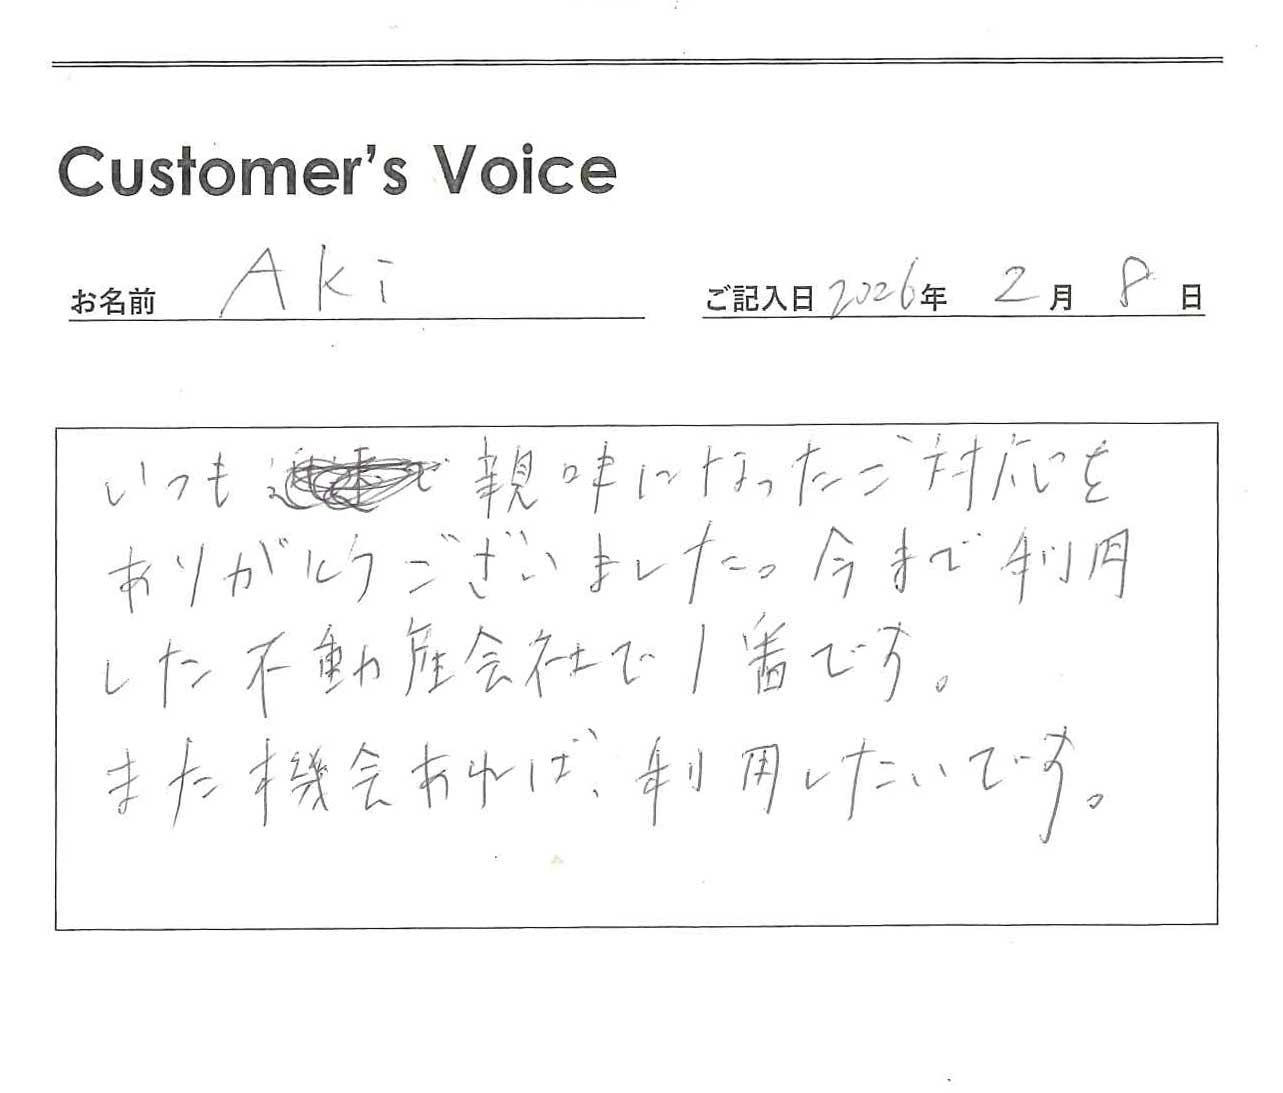 Customer's Voice
お名前 Aki
ご記入日 2026年 2月 8日
いつも 親味になったご対応を
ありがとうございました。今まで利用
した不動産会社で1番です。
また機会あれば、利用したいです。